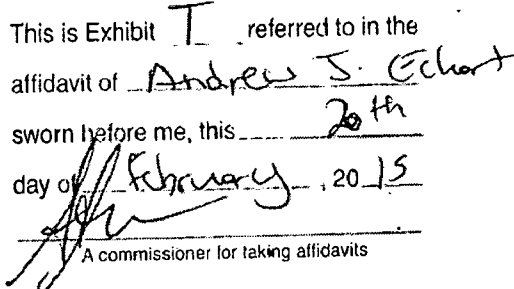 This is Exhibit I referred to in the
affidavit of Andrew J. Eckart
sworn before me, this 20th
day of February, 2015
A commissioner for taking affidavits